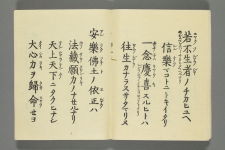 若不生者ノチカヒユヘ
信樂マコトニトキイタリ
一念慶喜スルヒトハ
往生カナラスサタマリヌ
安樂佛土ノ依正ハ
法藏願力ノナセルナリ
天上天下ニタクヒナシ
大心力ヲ歸命セヨ